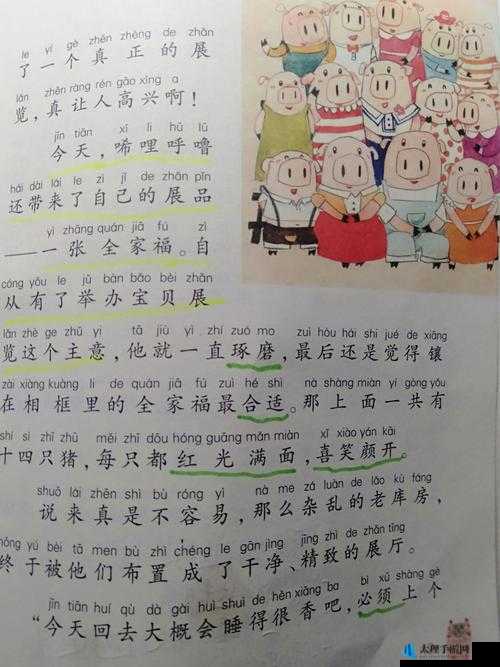 le yí gè zhēn zhèng de zhǎn
了一个真正的展
lǎn zhēn ràng rén gāo xìng a
览,真让人高兴啊!
jīn tiān xī li hū lū
今天,唏哩呼噜
hái dài lái le zì jǐ de zhǎn pǐn
还带来了自己的展品
yì zhāng quán jiā fú zì
——一张全家福。自
cóng yǒu le jǔ bàn bǎo bèi zhǎn
从有了举办宝贝展
lǎn zhè ge zhǔ yi tā jiù yì zhí zuó mo zuì hòu hái shi jué de xiāng
览这个主意,他就一直琢磨,最后还是觉得镶
zài xiàng kuàng li de quán jiā fú zuì hé shì nà shàng miàn yí gòng yǒu
在相框里的全家福最合适。那上面一共有
shí sì zhī zhū měi zhī dōu hóng guāng mǎn miàn xǐ xiào yán kāi
十四只猪,每只都红光满面,喜笑颜开。
shuō lái zhēn shì bù róng yì nà me zá luàn de lǎo kù fáng
说来真是不容易,那么杂乱的老库房,
zhōng yú bèi tā men bù zhì chéng le gān jìng jīng zhì de zhǎn tīng
终于被他们布置成了干净、精致的展厅。
jīn tiān huí qù dà gài huì shuì de hěn xiāng ba bì xū shàng gè
“今天回去大概会睡得很香吧,必须上个
太理手游网